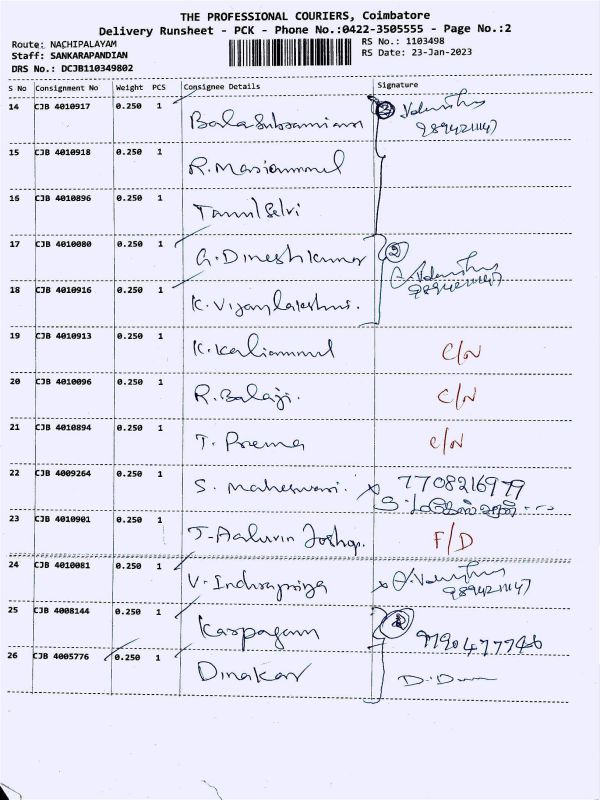 THE PROFESSIONAL COURIERS, Coimbatore
Delivery Runsheet - PCK - Phone No.:0422-3505555 - Page No.:2
Route: NACHIPALAYAM
Staff: SANKARAPANDIAN
DRS No.: DCJB110349802
RS No.: 1103498
RS Date: 23-Jan-2023
S No Consignment No Weight PCS Consignee Details Signature
14 CJB 4010917 0.250 1 Balasubramiam
9894211147
15 CJB 4010918 0.250 1 R. Mariammal
16 CJB 4010896 0.250 1 Tamil Selvi
17 CJB 4010080 0.250 1 G. Dineshkumar 2
18 CJB 4010916 0.250 1 K. Vijaylakshmi. 9894211147
19 CJB 4010913 0.250 1 K. Kaliammal C/N
20 CJB 4010096 0.250 1 R. Balaji. C/N
21 CJB 4010894 0.250 1 T. Prema C/N
22 CJB 4009264 0.250 1 S. Maheswari. x 7708216979
23 CJB 4010901 0.250 1 J. Aaluvin F/D
24 CJB 4010081 0.250 1 V. Indrapriya x
9894211147
25 CJB 4008144 0.250 1 Karpagam 9790477746
26 CJB 4005776 0.250 1 Dinakar